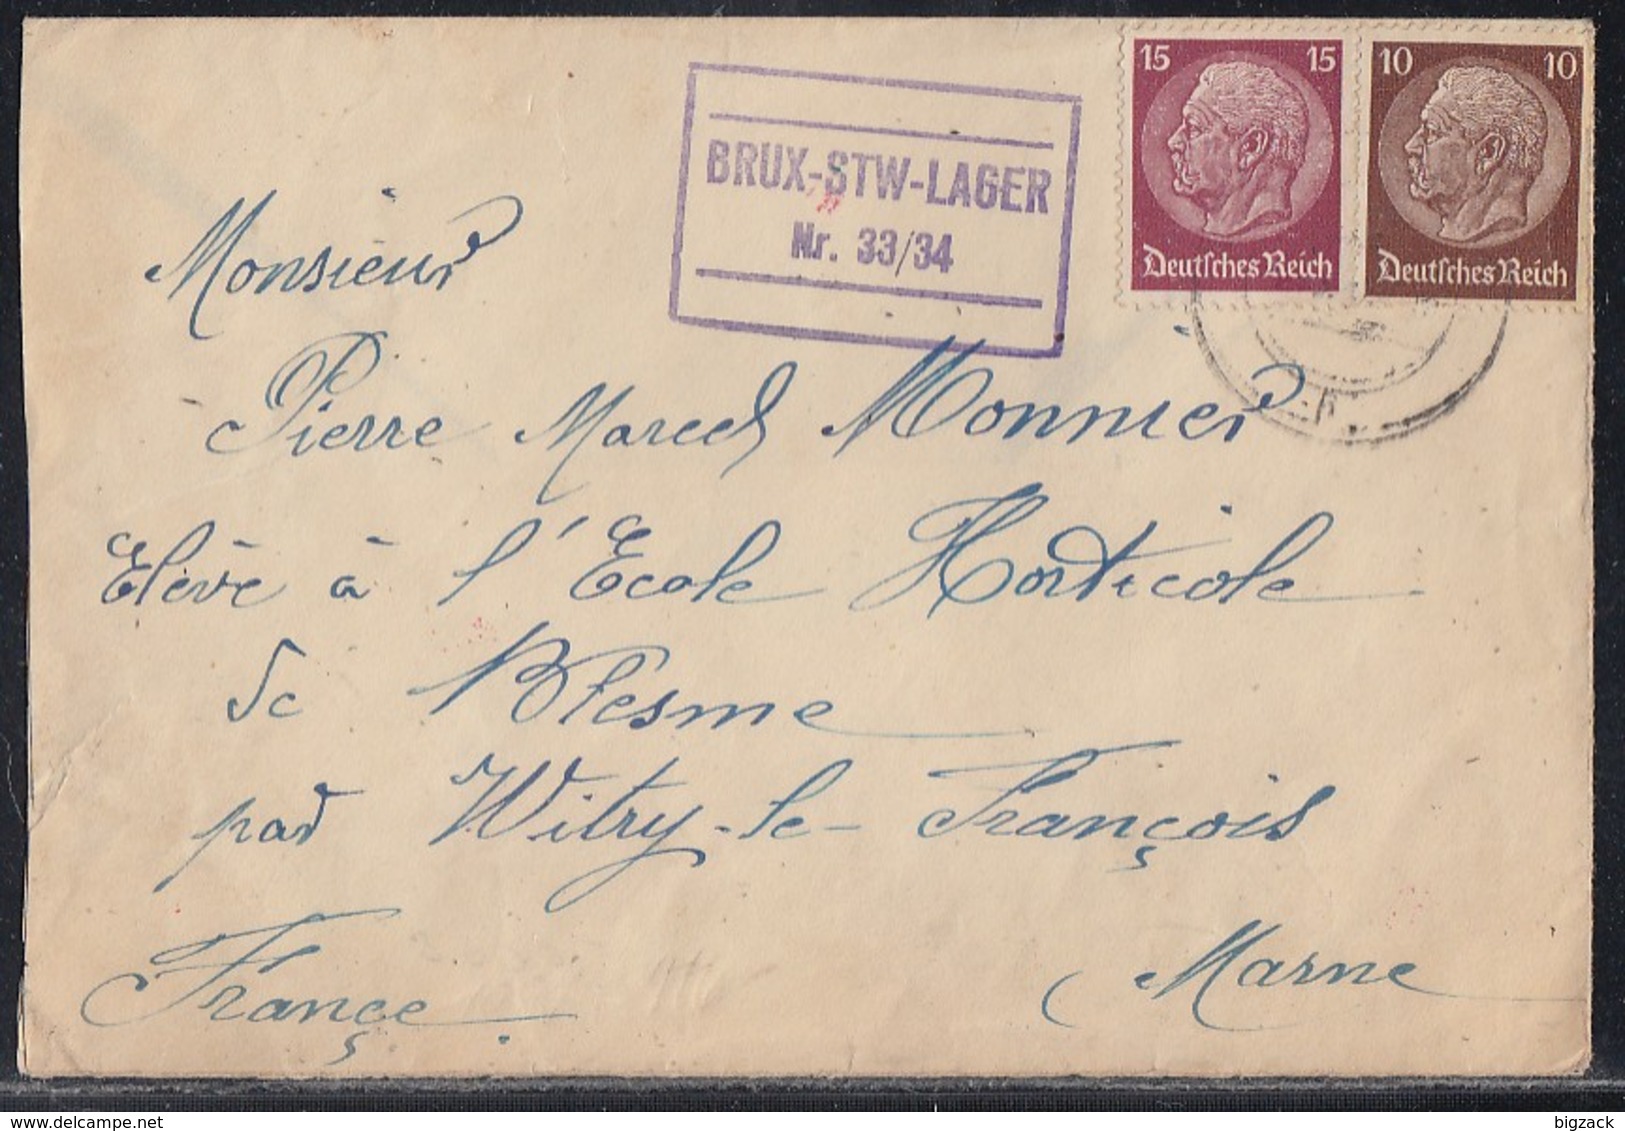 15 15
Deutsches Reich
10 10
Deutsches Reich
BRUX-STW-LAGER
Nr. 33/34
Monsieur
Pierre Marcel Monnier
Elève à l'Ecole Horticole
de Blesme
par Vitry-le-François
Marne
Françe
bigzack